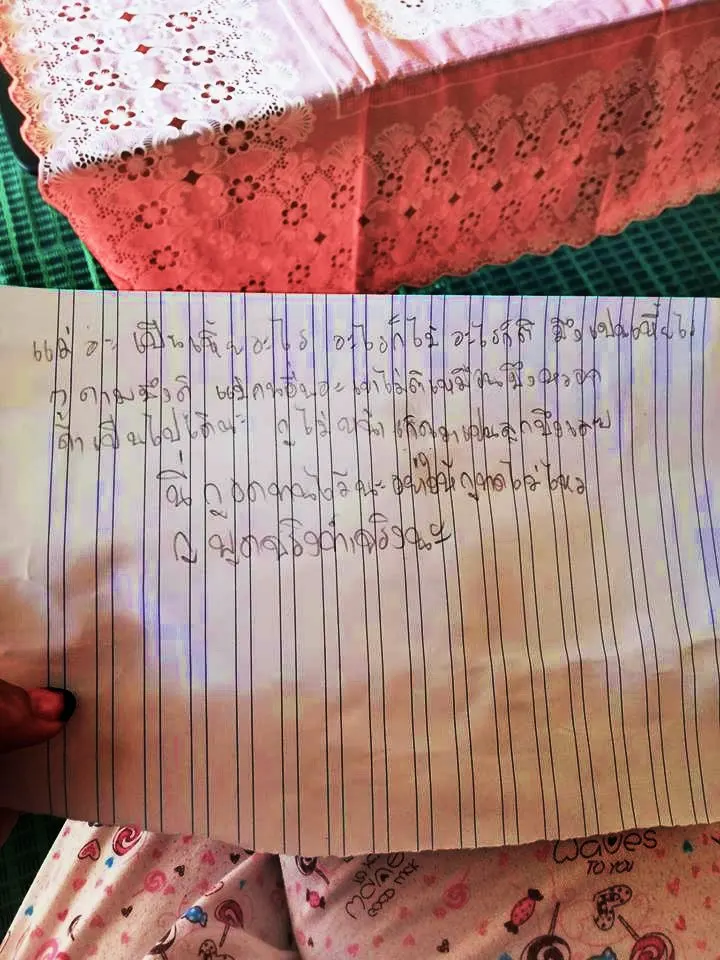 แม่ อะ เป็นเหี้ยอะไร อะไรก็ไม่ อะไรก็ดี มึงเป็นเหี้ยไร
กู ถามมึงดิ แม่คนอื่นอะ เขาไม่ดีเหมือนมึงหรอก
ถ้าเป็นไปได้นะ กูไม่ เกิดมาเป็นลูกมึงเลย
นี่ กูอดทนไว้นะ อย่าให้กูทนไม่ไหว
กู พูดจริงทำจริงนะ
WAVES
TO YOU
GOOD